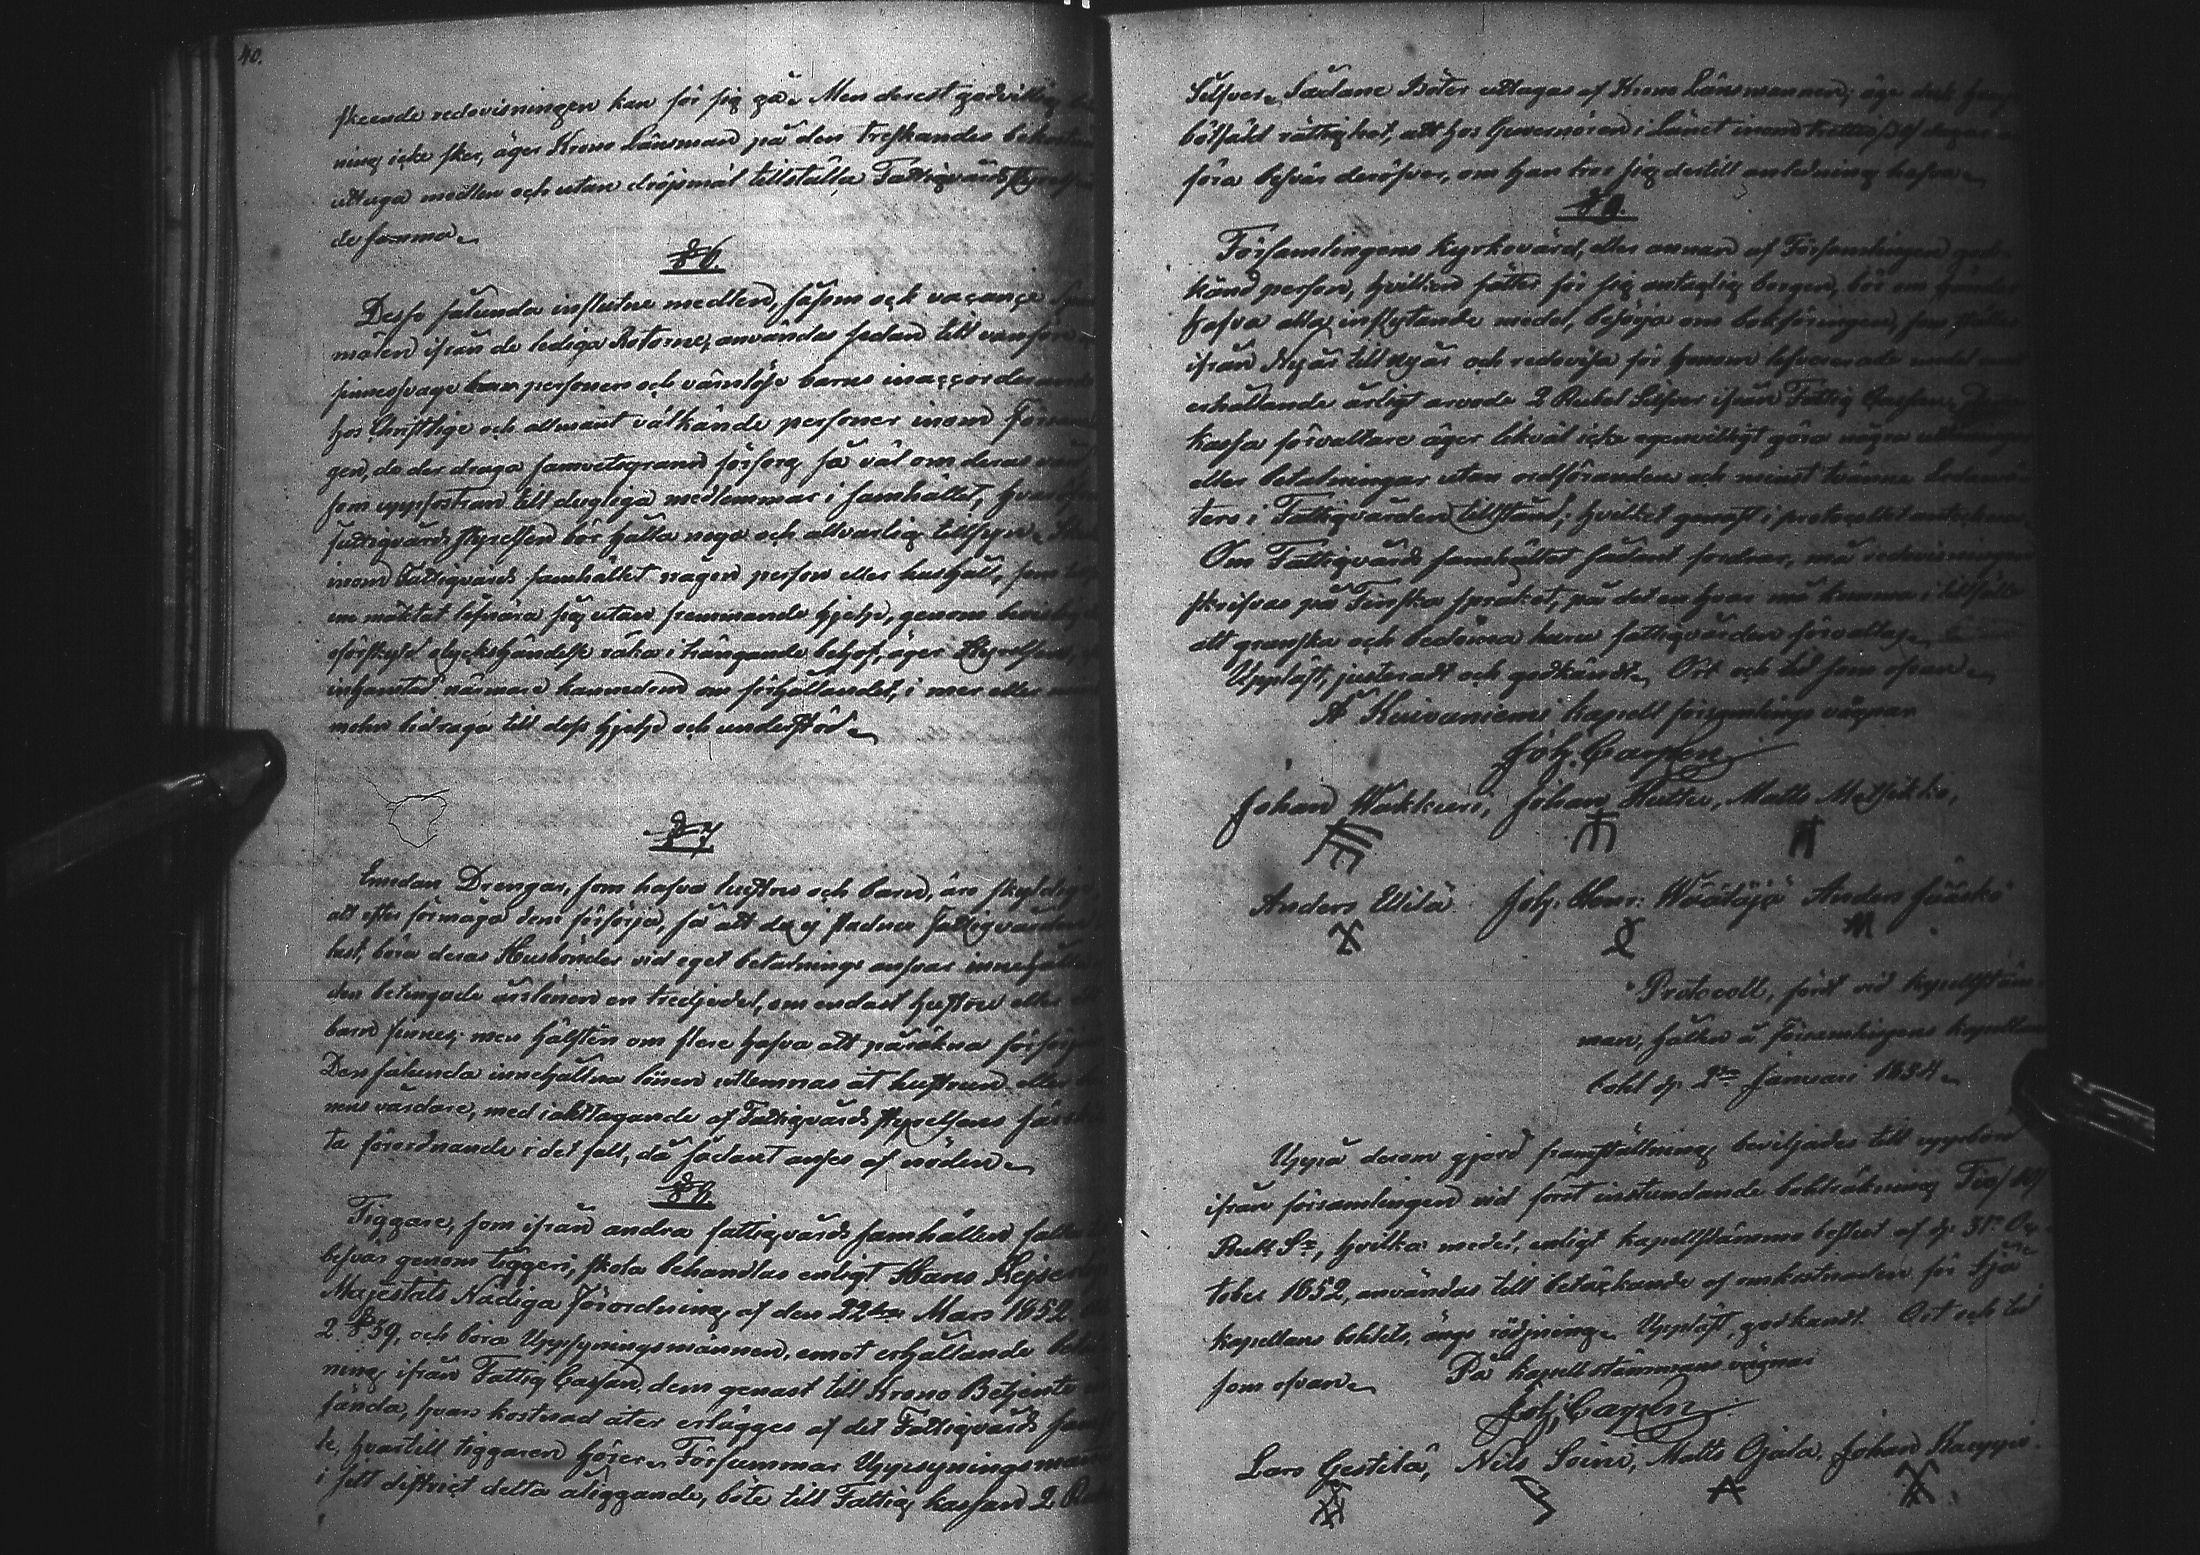 40.
skeende redovisningen kan för sig gå. Men derest godvillig
ning icke sker, äger Krono Länsman på den tredskandes bekostnad
uttaga medlen och utan dröjsmål tillställa Fattigvårds styrelsen
de samma.
§ 6.
Desse sålunda influtne medlen, såsom och vacance
målen ifrån de lediga Rotorne, användas sedan till vanföre
sinnessvage personers och värnlöse barns inaccorderande
hos Christlige och allmänt välkände personer inom Församlin
gen, de der draga samvetsgrann försorg, så väl om deras vård
som uppfostran till dugliga medlemmar i samhället, hvaröfver
fattigvårds styrelsen bör hålla noga och allvarlig tillsyn.
inom Fattigvårds samhället någon person eller hushåll, som
em mäktat lifnära sig utan främmande hjelp, genom
oförskyld olyckshändelse råka i trängande behof, äger Styrelsen,
inhämtad närmare kännedom om förhållandet, i mer eller mindre
mohn bidraga till dess hjelp och understöd.
§ 7
Emedan Drengar, som hafva hustru och barn, äro skyldige
att efter förmåga dem försörja, så att de ej stadna Fattigvården
last, böra deras Husbönder vid eget betalnings ansvar innehålla
den betingade årslönen en tredjedel, om endast hustru eller ett
barn finnes; men hälften om flere hafva att påräkna försörjning
Den sålunda innehållna lönen utlemnas åt hustrun eller bar
nens vårdare, med iakttagande af Fattigvårds styrelsens särskil
ta förordnande i det fall, då sådant anses af nöden.
§ 8
Tiggare, som ifrån andra fattigvårds samhällen falla
besvär genom tiggeri, skola behandlas enligt Hans Kejserliga
Majestäts Nådiga Förordning af den 22dra Mars 1852
2 § 39, och böra Uppsyningsmännen, emot erhållande betal
ning ifrån Fattig Cassan, dem genast till Krono Betjente
sända, hvars kostnad åter erlägges af det Fattigvårds samhäl
le, hvartill tiggaren hörer. Försummar Uppsyningsman
i sitt district detta åliggande, böte till Fattig kassan 2 Rubel
Silfver. Sådane Böter uttagas af Krono Länsmannen; äge dock
bötfäld rättighet, att hos Guvernören i Länet inom trettio /30/ dagar
föra besvär deröfver, om han tror sig dertill anledning hafva.
§ 9.
Församlingens Kyrkovärd, eller annan af Församlingen god
känd person, hvilken sätter för sig antaglig borgen, bör om händer
hafva alla inflytande medel, besörja om bokföringen, som ställes
ifrån Nyår till nyår och redovisa för honom besvarande medel
erhållande årligt arvode 2 Rubel Silfver ifrån Fattig Cassan.
kassa förvaltare äger likväl icke egenvilligt göra några utlåningar
eller betalningar utan ordföranden och minst tvänne Ledamö
ters i Fattigvården tillstånd, hvilket genast i protocollet antecknas.
Om Fattigvårds samhället sådant fordrar, må redovisningen
skrifvas på Finska språket, på det en hvar må komma i tillfälle
att granska och bedöma huru fattigvården förvaltas.
Uppläst, justeradt och godkändt. Ort och tid som ofvan.
På Kuivaniemi kapell församlings vägnar
Joh. Carpén
Johan Wakkuri, Johan Huttu, Matts Metsikkö,
Anders Ellilä Joh. Henr: Wäätäjä Anders Jääskö
Protocoll, fördt vid kapellstäm
man, hållen å Församlingens kapellans
bohl d. 2dra Januari 1854.
Uppå derom gjord framställning beviljades till uppbörd
ifrån församlingen vid först instundande bohlräkning Tio /10/
Rub Sr, hvilka medel, enligt kapellstämmo beslut af d. 31a Oc
tober 1852, användas till betäckande af omkostnaden för
kapellans bohlets ängs rödjning. Uppläst, godkändt. Ort och tid
som ofvan. På kapellstämmans vägnar
Joh. Carpén
Lars Gestilä, Nils Soini, Matts Ojala, Johan Kauppi.